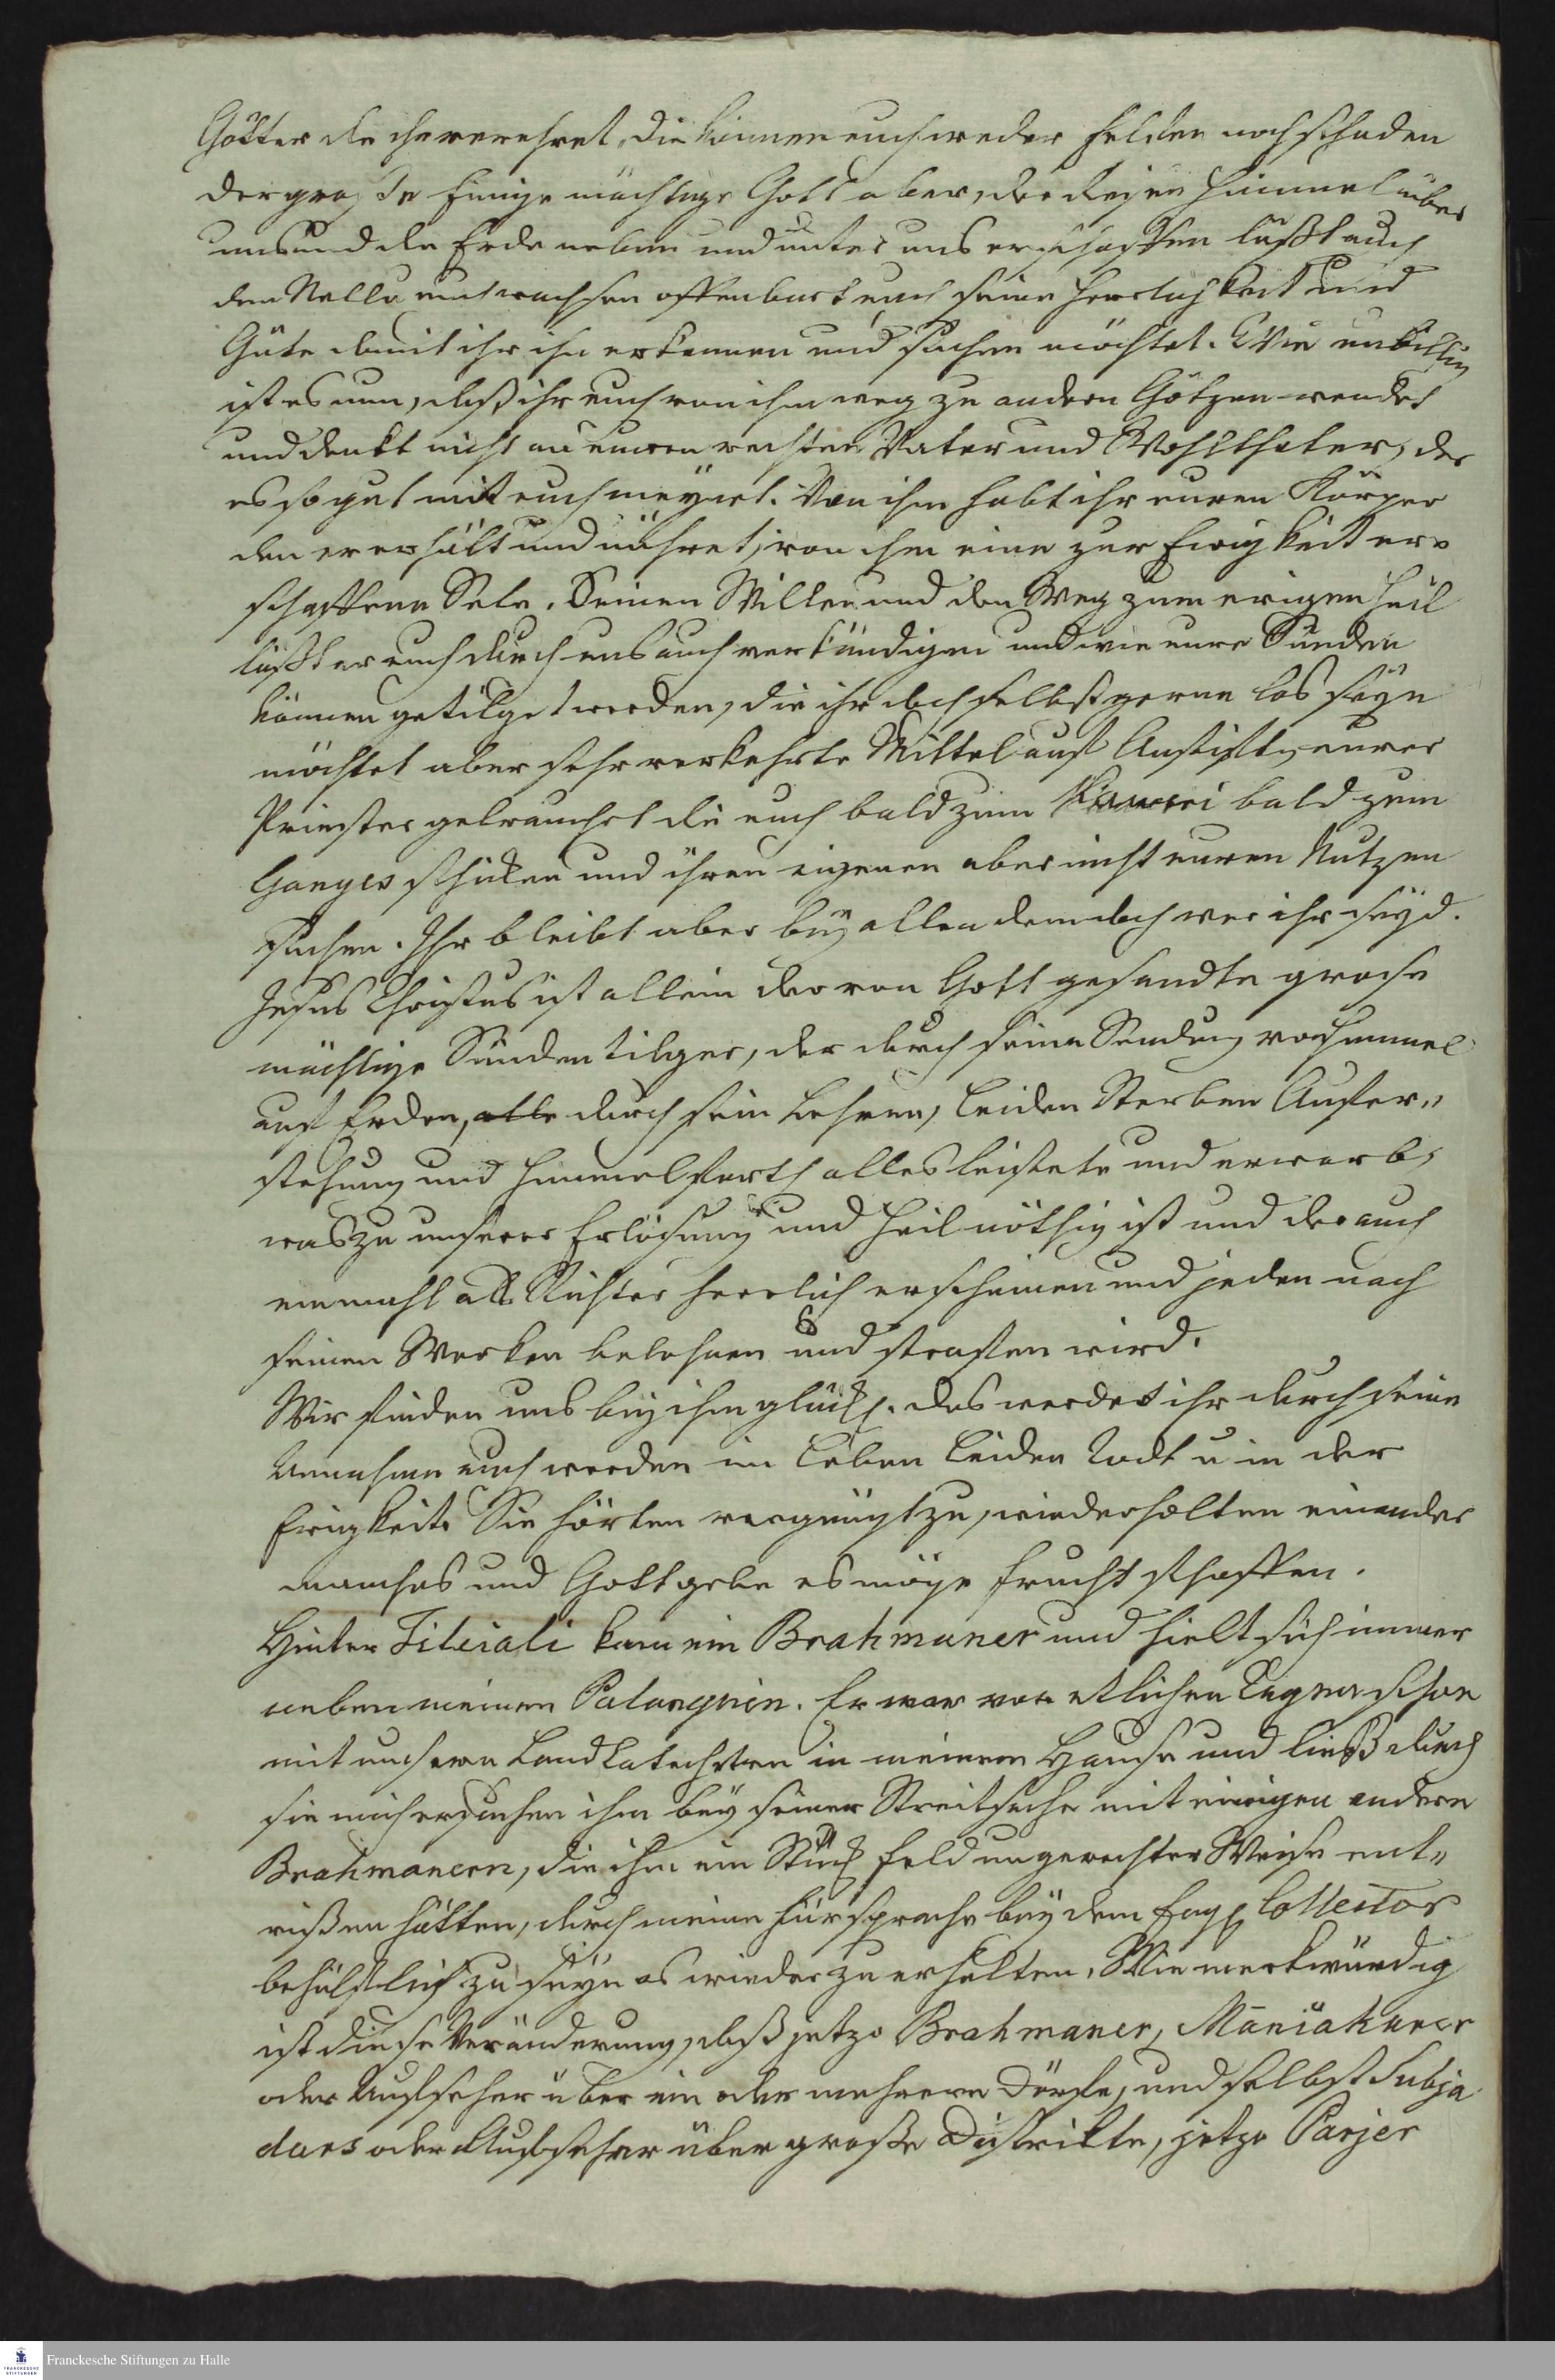 Götter die ihr verehret, die können euch weder helfen noch schaden
der große Einige mächtige Gott aber, der diesen Himmel über
uns und die Erde neben und unter uns erschaffen läßt auch
den Nellu euch wachsen offenbart euch seine Herrlichkeit und
Güte damit ihr ihn erkennen und suchen möchtet. Wie unbillig
ist es nun, daß ihr euch von ihm weg zu andern Götzen wendet
und denkt nicht an euren rechten Vater und Wohlthäter, der
es so gut mit euch meynet. Von ihm habt ihr euren Körper
den er erhält und nähret, von ihm eine zur Ewigkeit er-
schaffene Sele. Seinen Willen und den Weg zum ewigen Heil
läßt er euch durch uns auch verkündigen und wie eure Sünden
können getilget werden, die ihr doch selbst gerne los seyn
möchtet aber sehr verkehrte Mittel auf Anstiften eurer
Priester gebrauchet die euch bald zum Kaweri bald zum
Ganges schicken und ihren eigenen aber nicht euren Nutzen
suchen. Ihr bleibt aber bey allen dem doch wer ihr seyd.
Jesus Christus ist allein der von Gott gesandte grose
mächtige Sündentilger, der durch seine Sendung vom Himmel
auf Erden, alle durch sein Lehren, Leiden Sterben Aufer„
stehung und Himmelfarth alles leistete und erwarb,
was zu unserer Erlösung und Heil nöthig ist und der auch
einmahl als Richter herrlich erscheinen und jeden nach
seinen Werken belohnen und straffen wird.
Wir finden uns bey ihm glückl. das werdet ihr durch seine
Annahme auch werden im Leben Leiden Todt u in der
Ewigkeit. Sie hörten vergnügt zu, wiederholten einander
manches und Gott gebe es möge Frucht schaffen.
Hinter Tileiali kam ein Brahmaner und hielt sich immer
neben meinem Palanquin. Er war vor etlichen Tagen schon
mit unsern Landkatecheten in meinem Hause und ließ durch
sie mich ersuchen ihm bey seiner Streitsache mit einigen andern
Brahmanern, die ihm ein Stück Feld ungerechter Weise ent„
rißen hätten, durch meine Fürsprache bey dem Engl Collector
behülflich zu seyn es wieder zu erhalten. Wie merkwürdig
ist diese Veränderung, daß jetzo Brahmaner, Maniakarer
oder Aufseher über ein oder mehrere Dörfer, und selbst Subja
dars oder Aufseher über große Distrikte, jetzo Parjer
Franckesche Stiftungen zu Halle
FRANCKESCHE
STIFTUNGEN